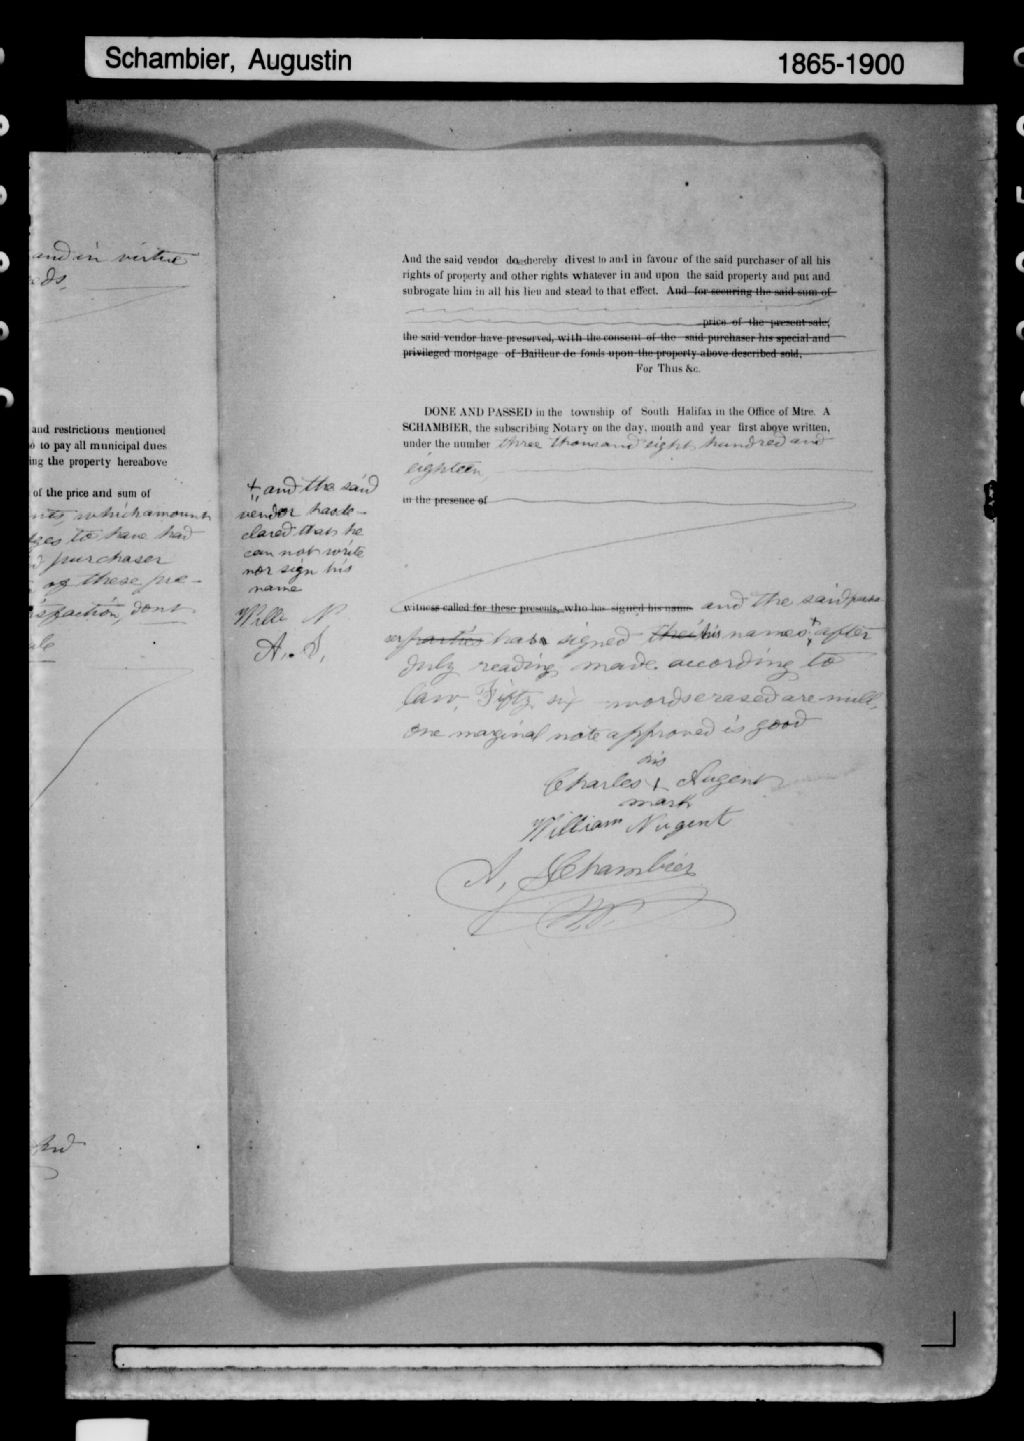 Schambier, Augustin
1865-1900
and in virtue
and restrictions mentioned
to pay all municipal dues
ing the property hereabove
of the price and sum of
which amount
to have had
purchaser
of these pre-
isfaction, dont
And the said vendor do hereby divest to and in favour of the said purchaser of all his
rights of property and other rights whatever in and upon the said property and put and
subrogate him in all his lieu and stead to that effect. And for securing the said sum of
price of the present sale,
the said vendor have preserved, with the consent of the said purchaser his special and
privileged mortgage of Bailleur de fonds upon the property above described sold.
For Thus &c.
DONE AND PASSED in the township of South Halifax in the Office of Mtre. A
SCHAMBIER, the subscribing Notary on the day, month and year first above written,
under the number three thousand eight hundred and
eighteen,
in the presence of
+ and the said
vendor has de-
clared that he
can not write
nor sign his
name
Willi N
A. S.
witness called for these presents, who has signed his name and the said purcha
ser parties has signed their his names + after
duly reading made according to
law. Fifty six words erased are null,
one marginal note approved is good
his
Charles + Nugent
mark
William Nugent
A, Schambier
N.P.